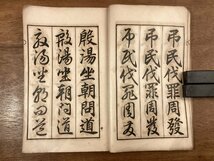 吊民伐罪周發
吊民伐罪周發
吊民伐罪周發
殷湯坐朝問道
殷湯坐朝問道
殷湯坐朝問道